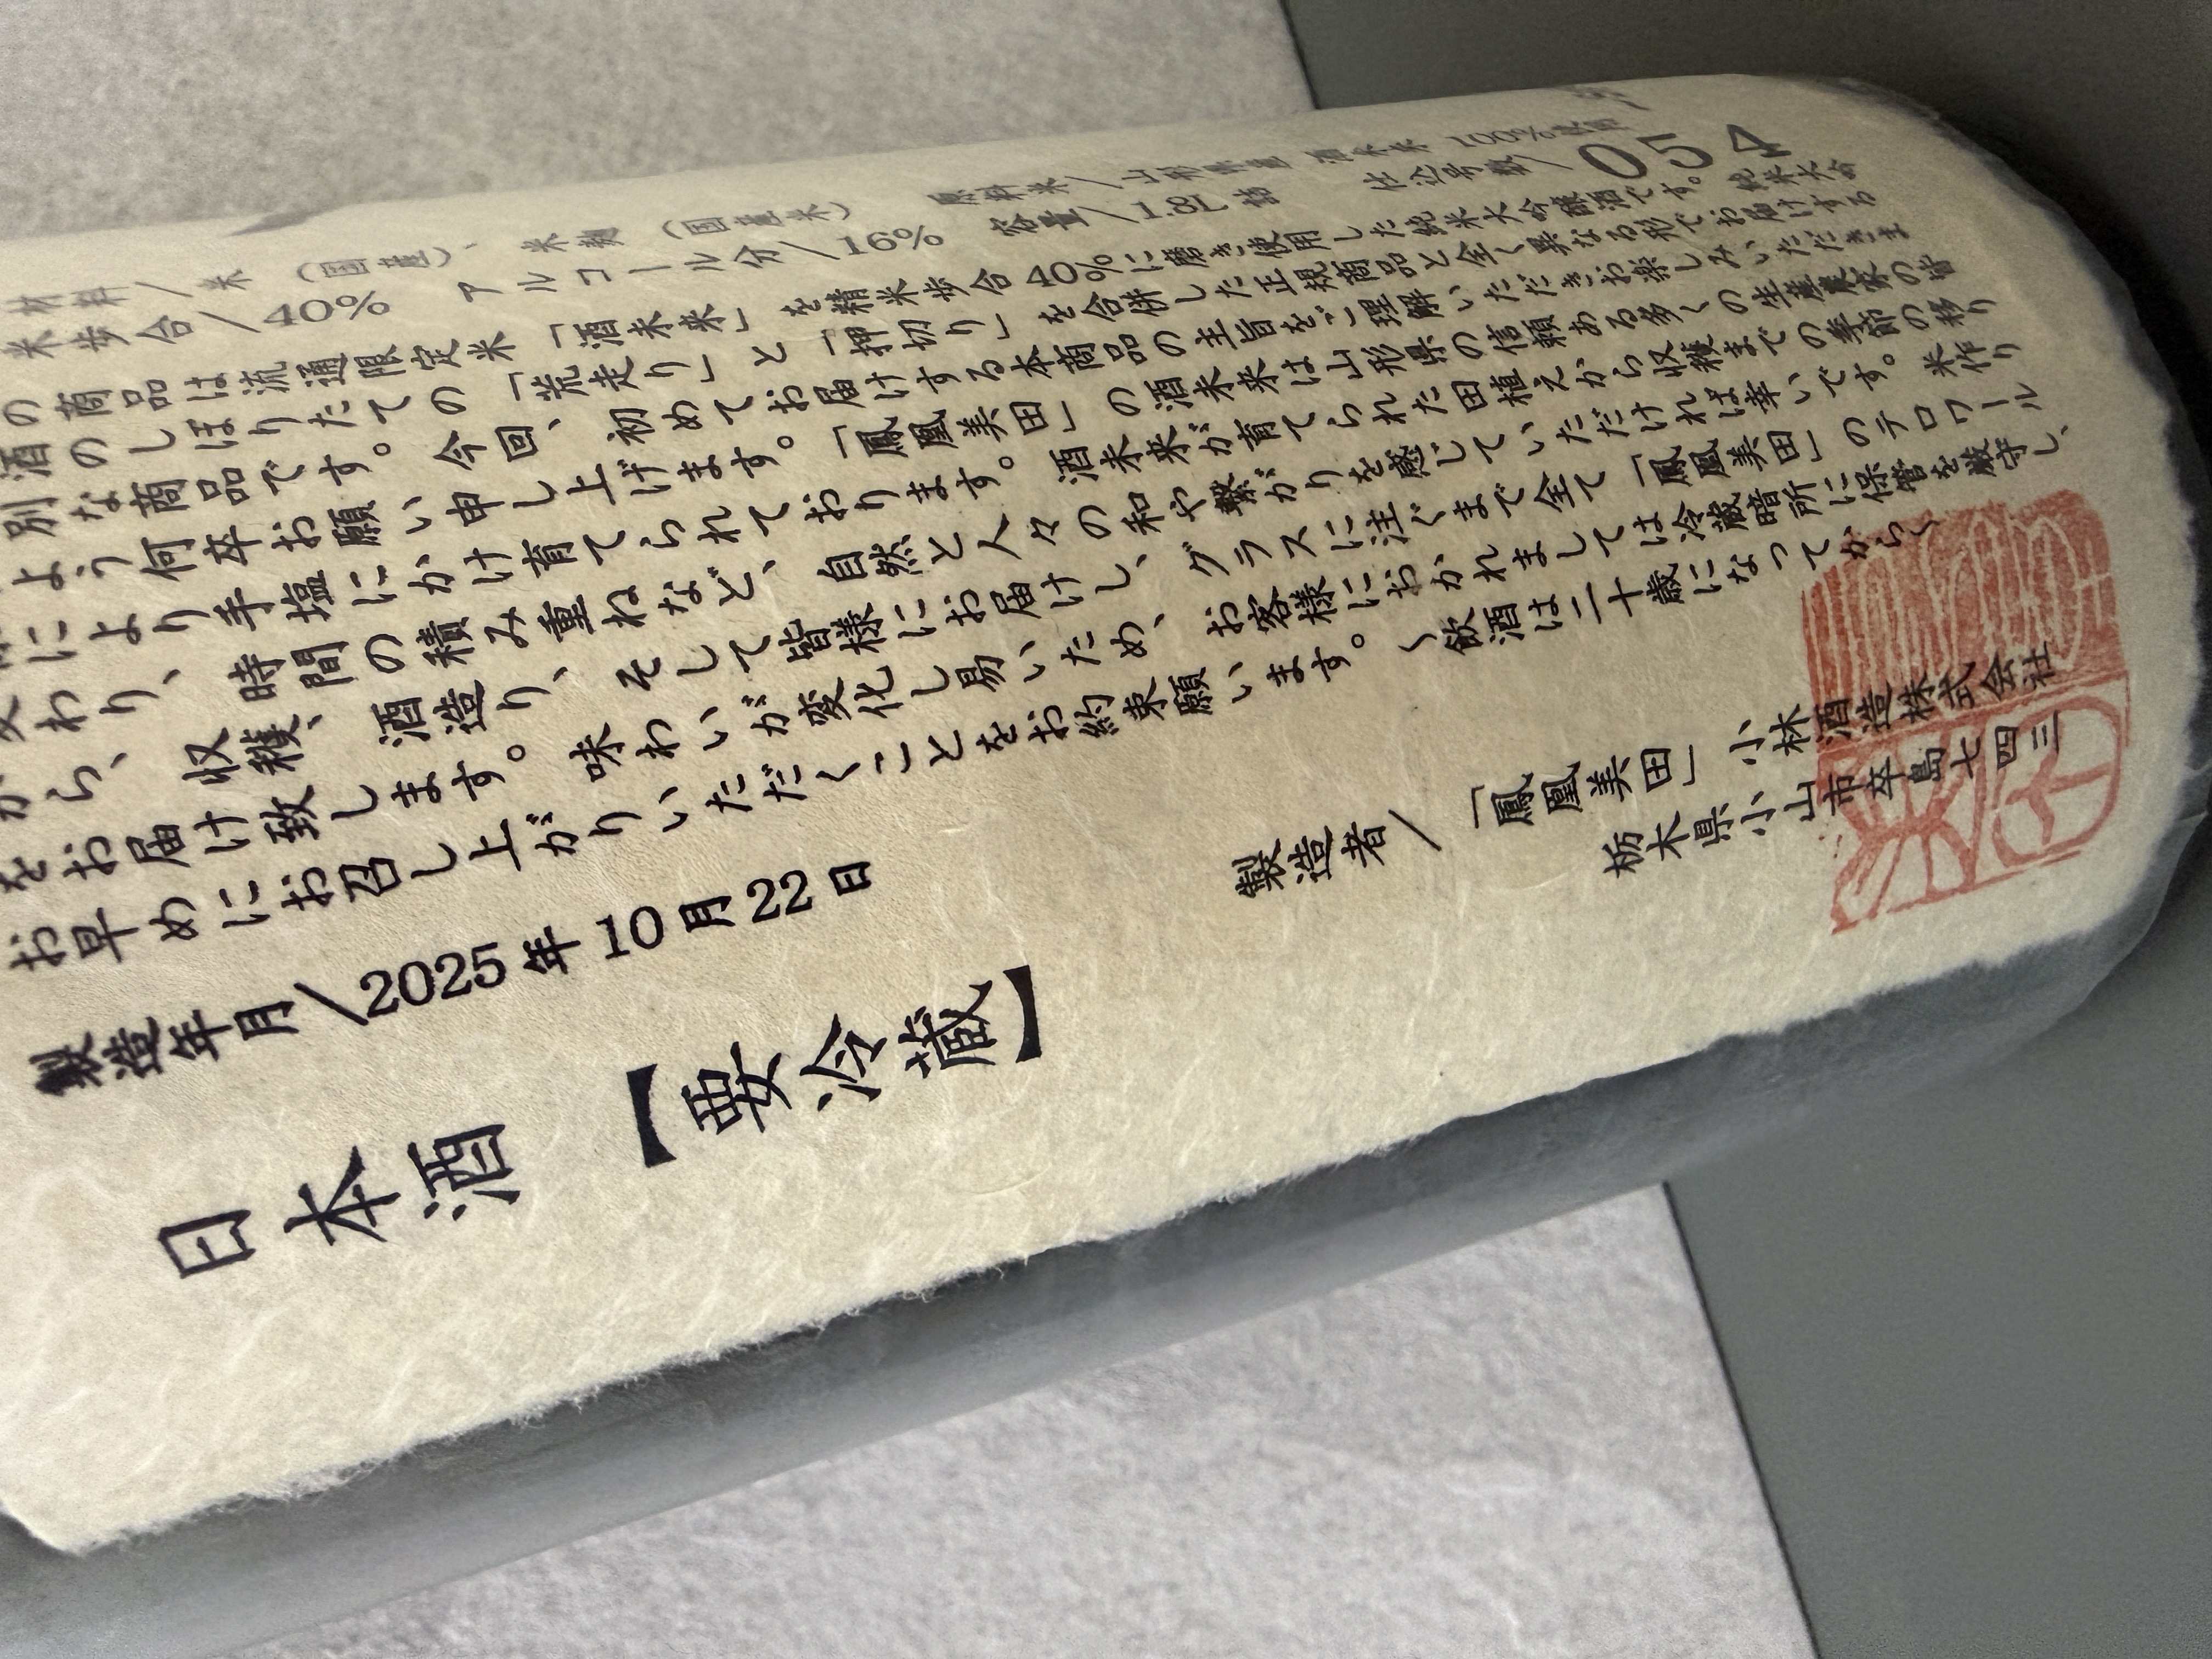 材料/米（国産）、米麹（国産米）　原料米/山形県産 酒未来 100%使用
米歩合/40%　アルコール分/16%　容量/1.8L詰　仕込号数/054
の商品は流通限定米「酒未来」を精米歩合40%に磨き使用した純米大吟醸酒です。純米大吟
酒のしぼりたての「荒走り」と「押切り」を合併した正規商品と全く異なる形でお届けする
別な商品です。今回、初めてお届けする本商品の主旨をご理解いただきお楽しみいただきま
よう何卒お願い申し上げます。「鳳凰美田」の酒未来は山形県の信頼ある多くの生産農家の皆
により手塩にかけ育てられております。酒未来が育てられた田植えから収穫までの季節の移り
わり、時間の積み重ねなど、自然と人々の和や繋がりを感じていただければ幸いです。米作り
から、収穫、酒造り、そして皆様にお届けし、グラスに注ぐまで全て「鳳凰美田」のテロワール
をお届け致します。味わいが変化し易いため、お客様におかれましては冷蔵暗所に保管を厳守し、
お早めにお召し上がりいただくことをお約束願います。〜飲酒は二十歳になってから〜
製造年月/2025年10月22日
製造者/「鳳凰美田」小林酒造株式会社
栃木県小山市卒島七四三
日本酒【要冷蔵】